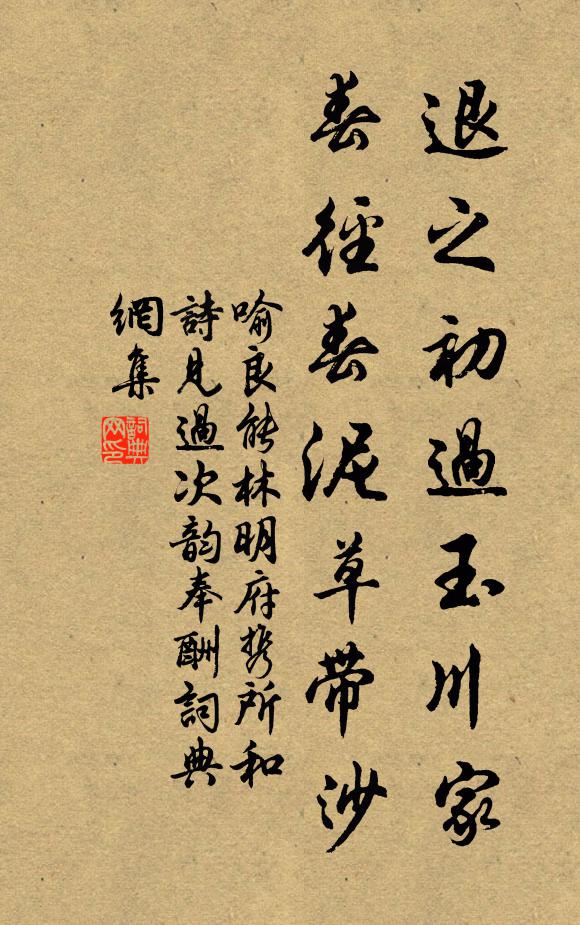 退之初過玉川家
春徑春泥草帶沙
喻良能林明府携所和
詩見過次韵奉酬詞典
網集
詞典
网印